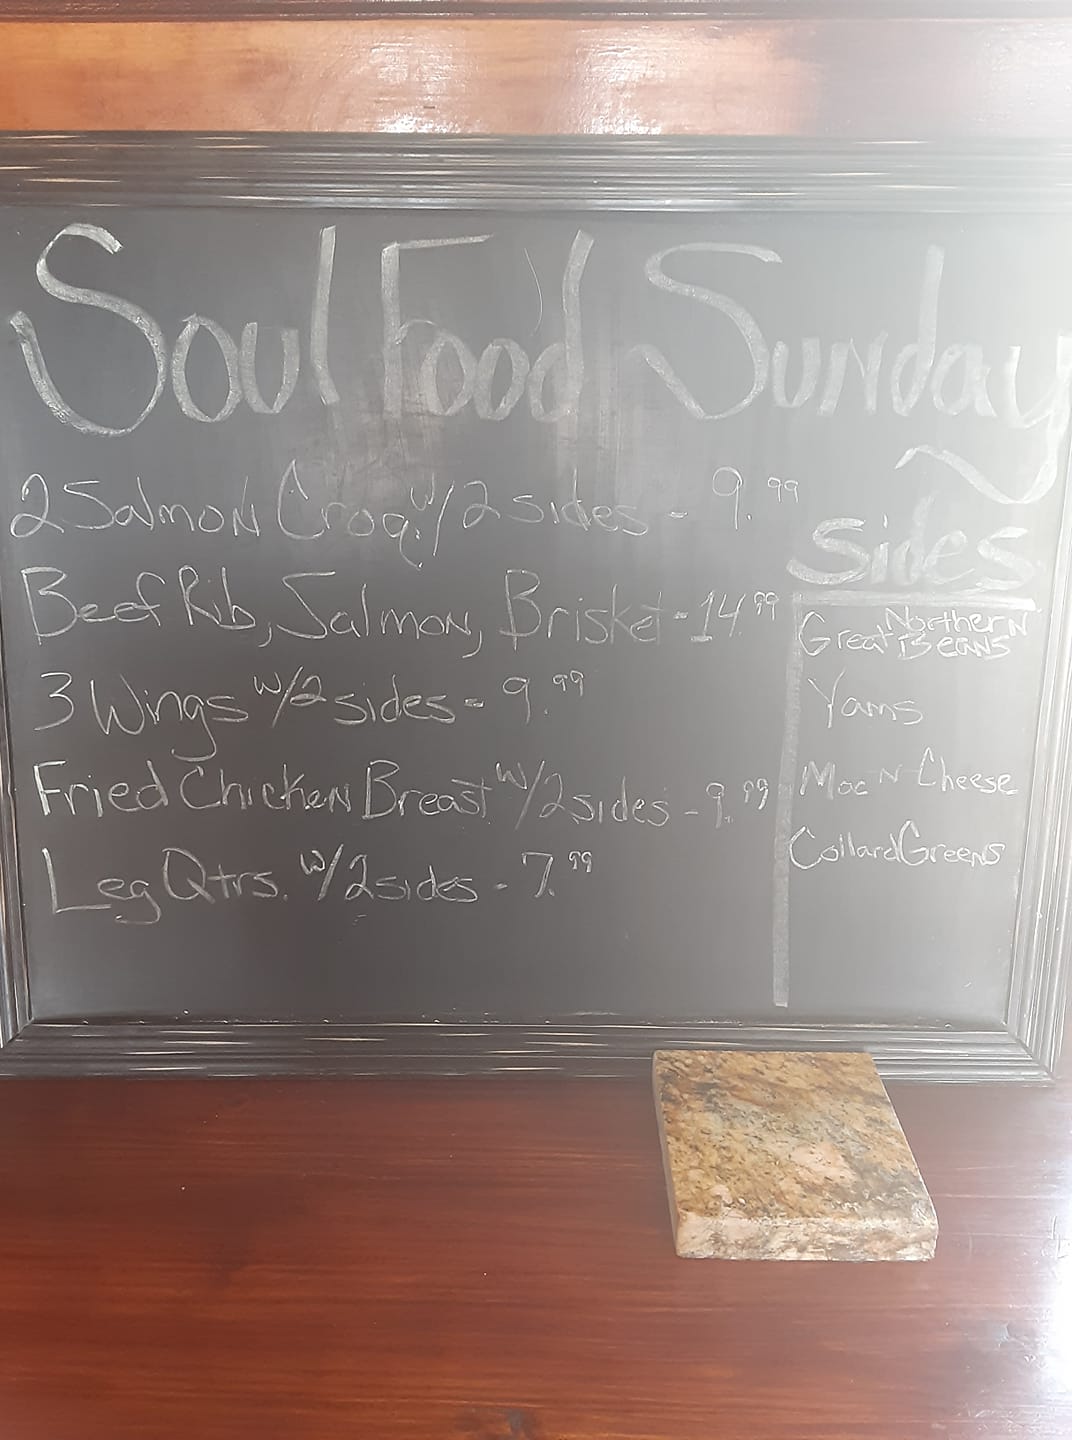 Soul Food Sunday
2 Salmon Croq. w/2 sides - 9.99
Beef Rib, Salmon, Brisket - 14.99
3 Wings w/2 sides - 9.99
Fried Chicken Breast w/2 sides - 9.99
Leg Qtrs. w/2 sides - 7.99
Sides
Great Northern
Beans
Yams
Mac N Cheese
Collard Greens